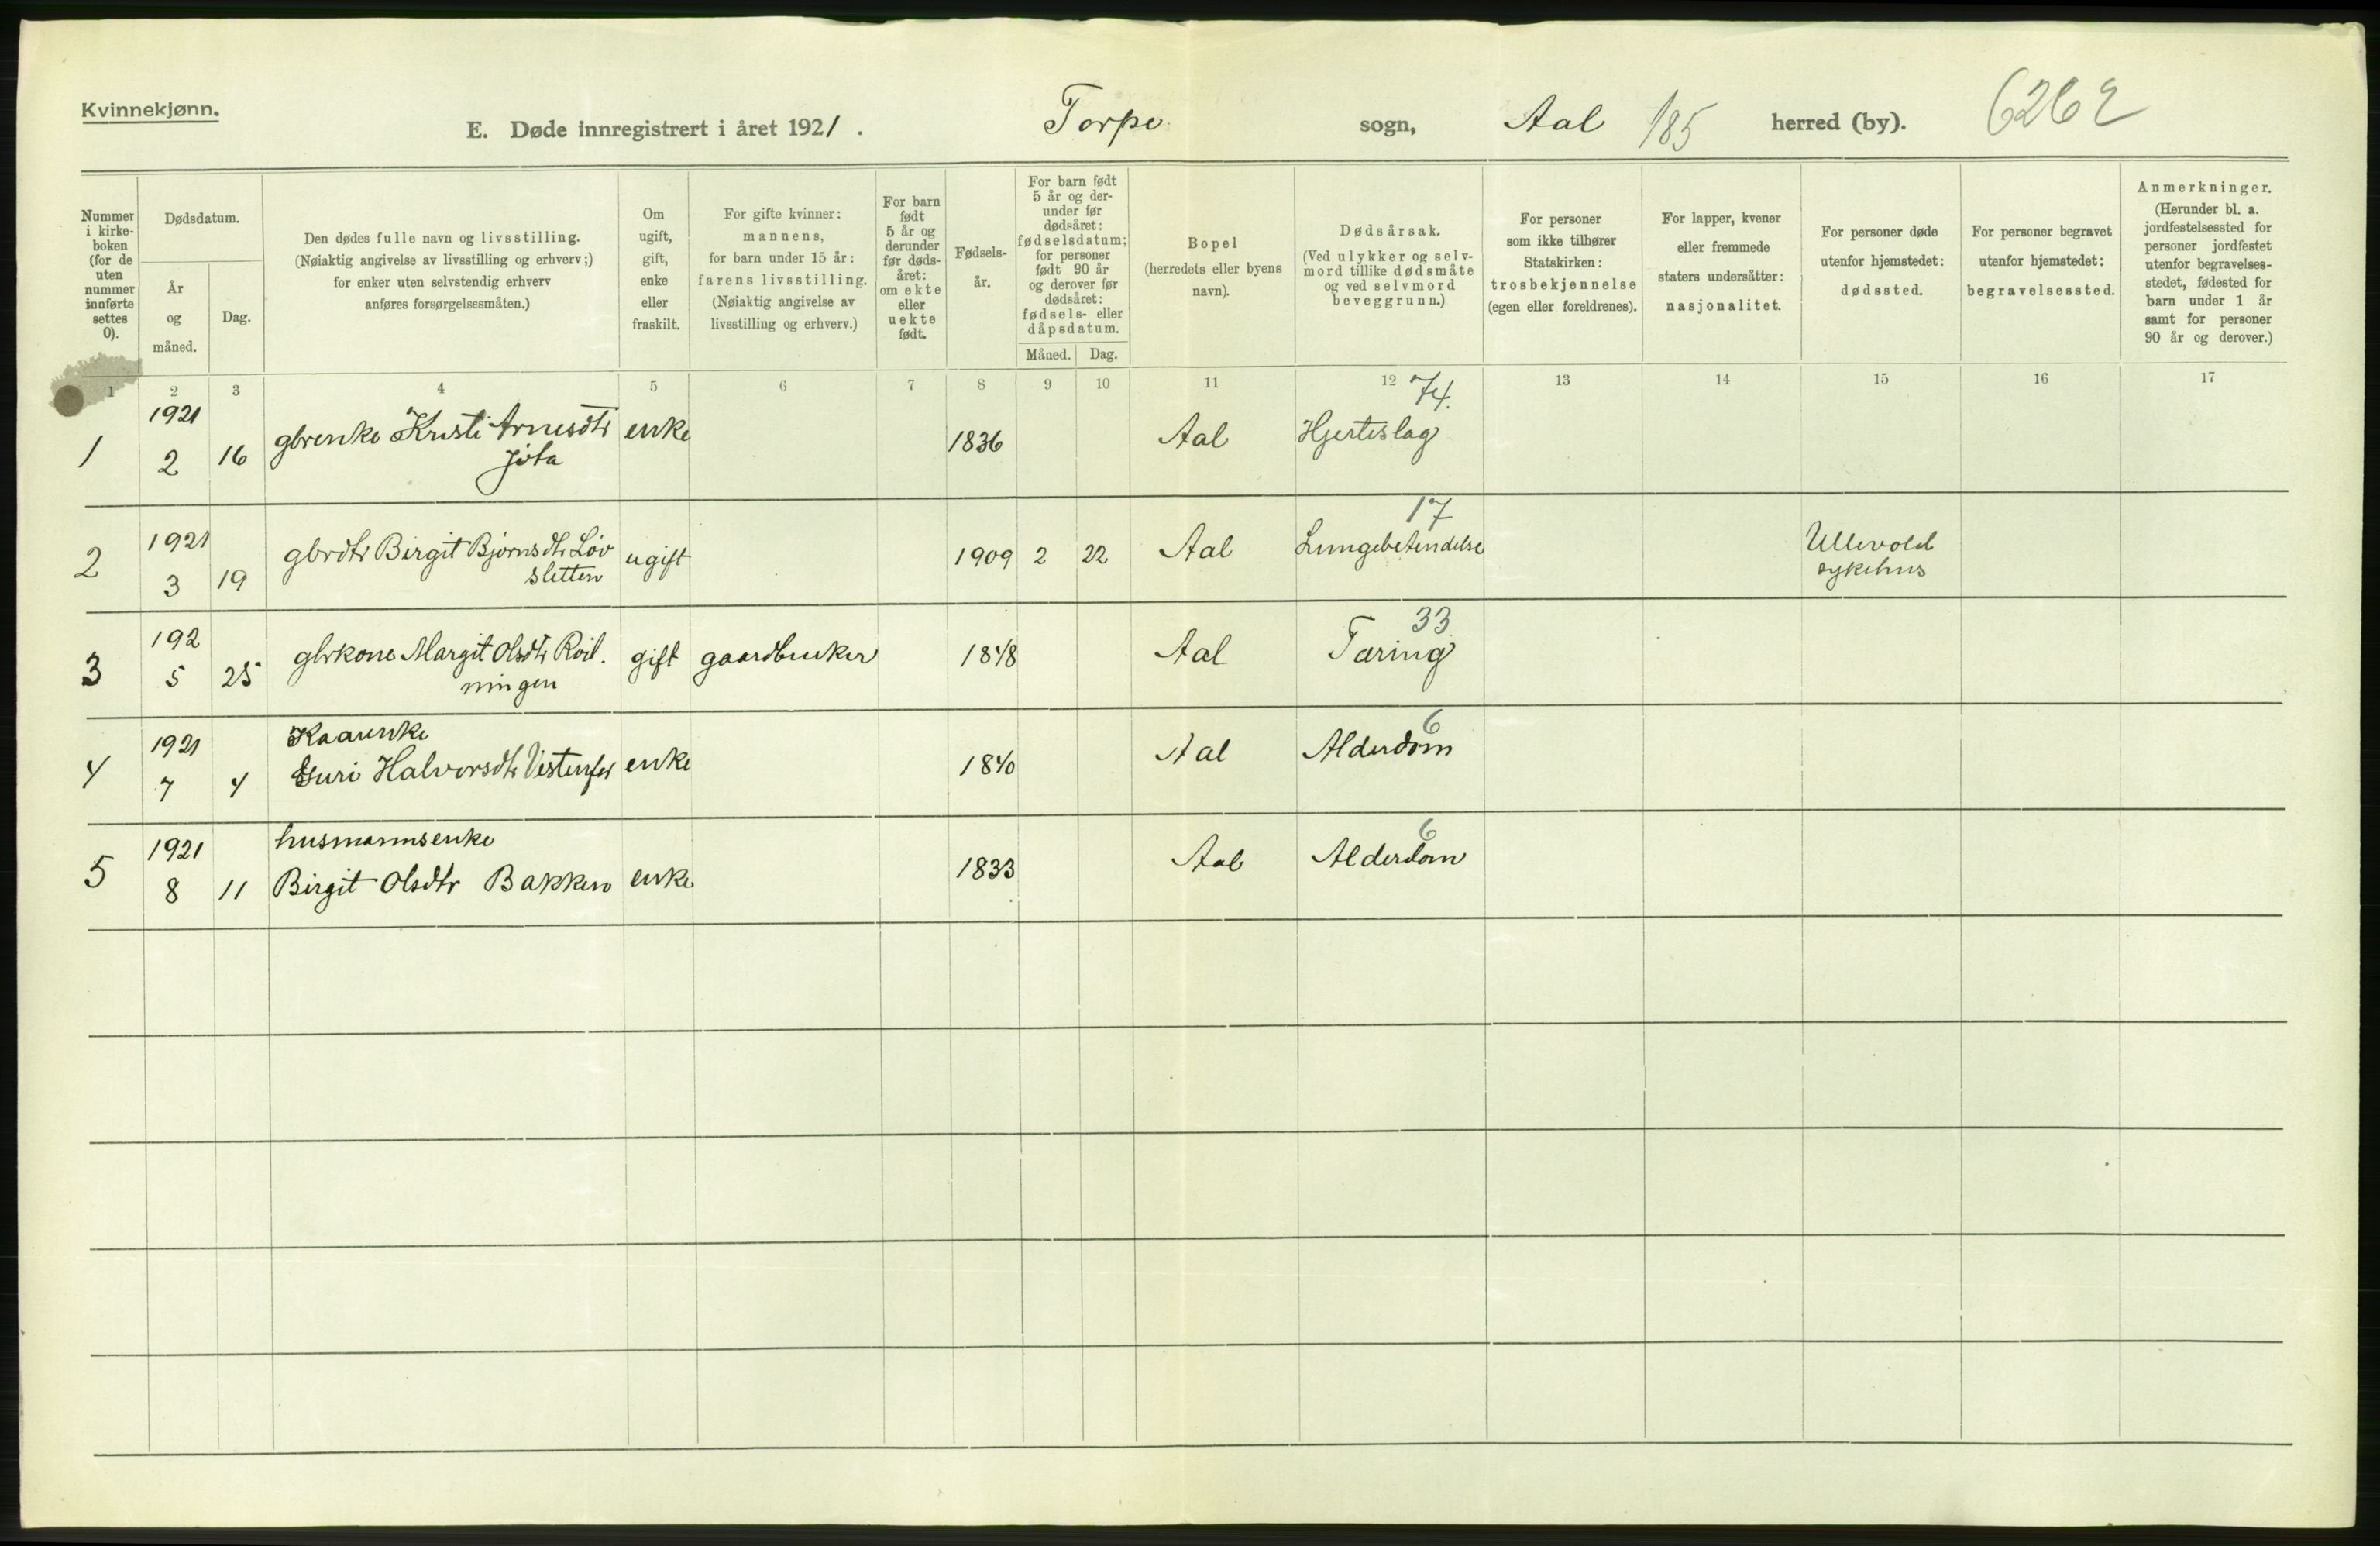 Kvinnekjønn.
E. Døde innregistrert i året 1921. Torpo sogn, Aal 185 herred (by). 6262
Nummer i kirkeboken (for de uten nummer innførte settes 0).
Dødsdatum.
År og måned.
Dag.
Den dødes fulle navn og livsstilling.
(Nøiaktig angivelse av livsstilling og erhverv;)
for enker uten selvstendig erhverv
anføres forsørgelsesmåten.)
Om
ugift,
gift,
enke
eller
fraskilt.
For gifte kvinner:
mannens,
for barn under 15 år:
farens livsstilling.
(Nøiaktig angivelse av
livsstilling og erhverv.)
For barn
født
5 år og
derunder
før døds-
året:
om ekte
eller
uekte
født.
Fødsels-
år.
For barn født
5 år og der-
under før
dødsåret:
fødselsdatum;
for personer
født 90 år
og derover før
dødsåret:
fødsels- eller
dåpsdatum.
Måned. Dag.
Bopel
(herredets eller byens
navn).
Dødsårsak.
(Ved ulykker og selv-
mord tillike dødsmåte
og ved selvmord
beveggrunn.)
For personer
som ikke tilhører
Statskirken:
trosbekjennelse
(egen eller foreldrenes).
For lapper, kvener
eller fremmede
staters undersåtter:
nasjonalitet.
For personer døde
utenfor hjemstedet:
dødssted.
For personer begravet
utenfor hjemstedet:
begravelsessted.
Anmerkninger.
(Herunder bl. a.
jordfestelsessted for
personer jordfestet
utenfor begravelses-
stedet, fødested for
barn under 1 år
samt for personer
90 år og derover.)
1 2 3 4 5 6 7 8 9 10 11 12 13 14 15 16 17
74.
1 1921 2 16 gbrenke Kristi Arnesdtr enke 1836 Aal Hjerteslag
17
2 1921 3 19 gbrdtr Birgit Bjørnsdtr Løv ugift 1909 2 22 Aal Lungebetendelse Ullevold
sletten sykehus
33
3 192 5 25 gbrkone Margit Olsdtr gift gaardbruker 1848 Aal Tæring
ningen
Kaarenke 6
4 1921 7 4 Guri Halvorsdtr enke 1840 Aal Alderdom
husmannsenke 6
5 1921 8 11 Birgit Olsdtr Bakken enke 1833 Aal Alderdom